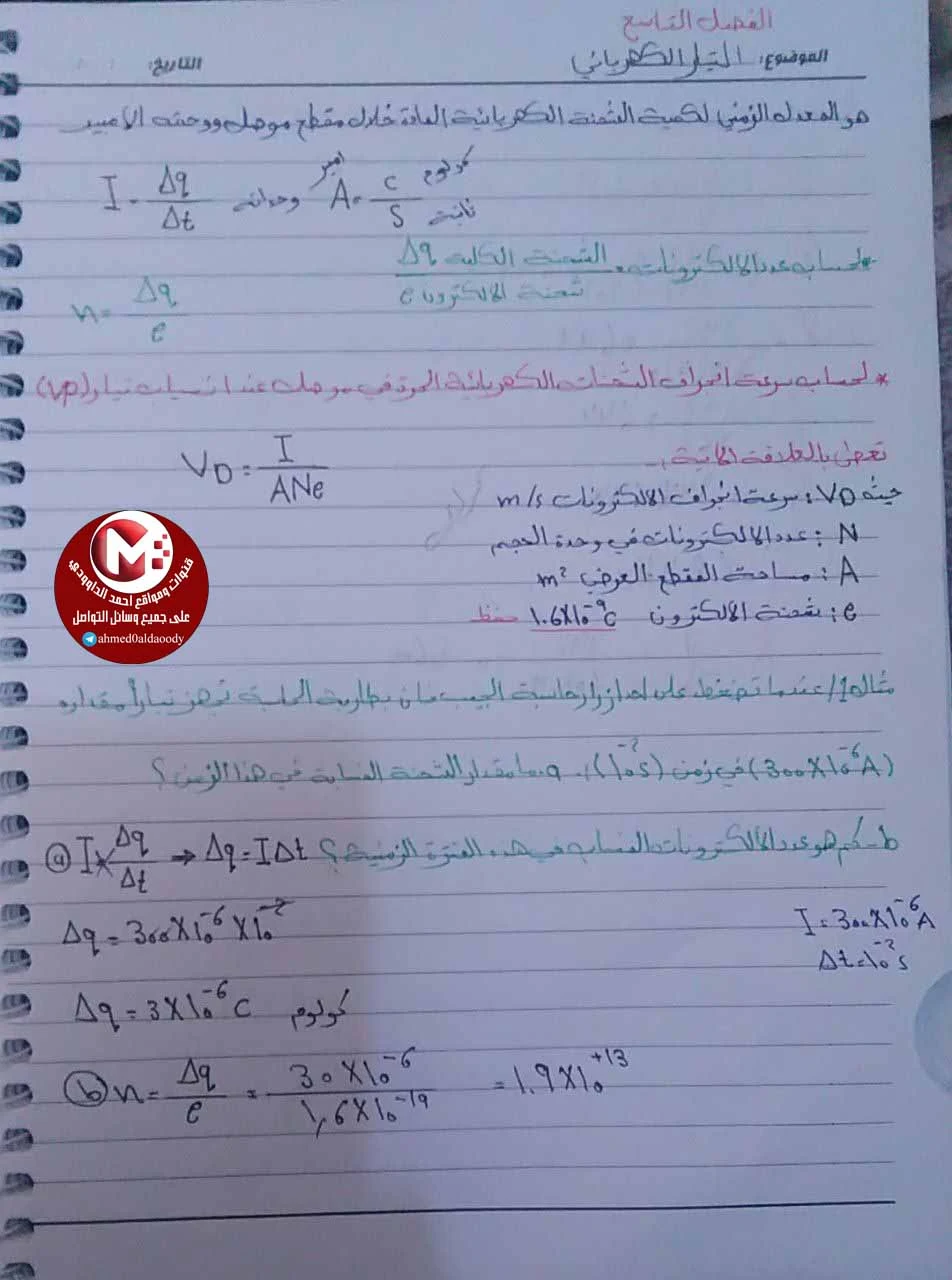 الفصل التاسع
الموضوع: التيار الكهربائي التاريخ:
هو المعدل الزمني لكمية الشحنة الكهربائية المارة خلال مقطع موصل ووحدته الامبير
I = Δq/Δt وحداته A امبير = C/S كولوم ثانية
*لحساب عدد الالكترونات = الشحنة الكلية Δq / شحنة الالكترون e
n = Δq/e
* لحساب سرعة انجراف الشحنات الكهربائية الحرة في موصل عند انسياب تيار (VD)
تعطى بالعلاقة الاتية
VD = I/ANe
حيث VD: سرعة انجراف الالكترونات m/s
N: عدد الالكترونات في وحدة الحجم
A: مساحة المقطع العرضي m²
e: شحنة الالكترون 1.6X10⁻¹⁹C حفظ
M
قنوات ومواقع احمد الداوودي
على جميع وسائل التواصل
ahmed0aldaoody
مثال1/ عندما تضغط على احد ازرار حاسبة الجيب فان بطارية الحاسبة تجهز تياراً مقداره
(300X10⁻⁶A) في زمن (10⁻²s) a. ما مقدار الشحنة المنسابة في هذا الزمن؟
b- كم هو عدد الألكترونات المنساب في هذه الفترة الزمنية؟
ⓐ I = Δq/Δt → Δq = IΔt
I = 300X10⁻⁶A
Δt = 10⁻²s
Δq = 300X10⁻⁶X10⁻²
Δq = 3X10⁻⁶C كولوم
ⓑ n = Δq/e = 30X10⁻⁶/1,6X10⁻¹⁹ = 1.9X10⁺¹³